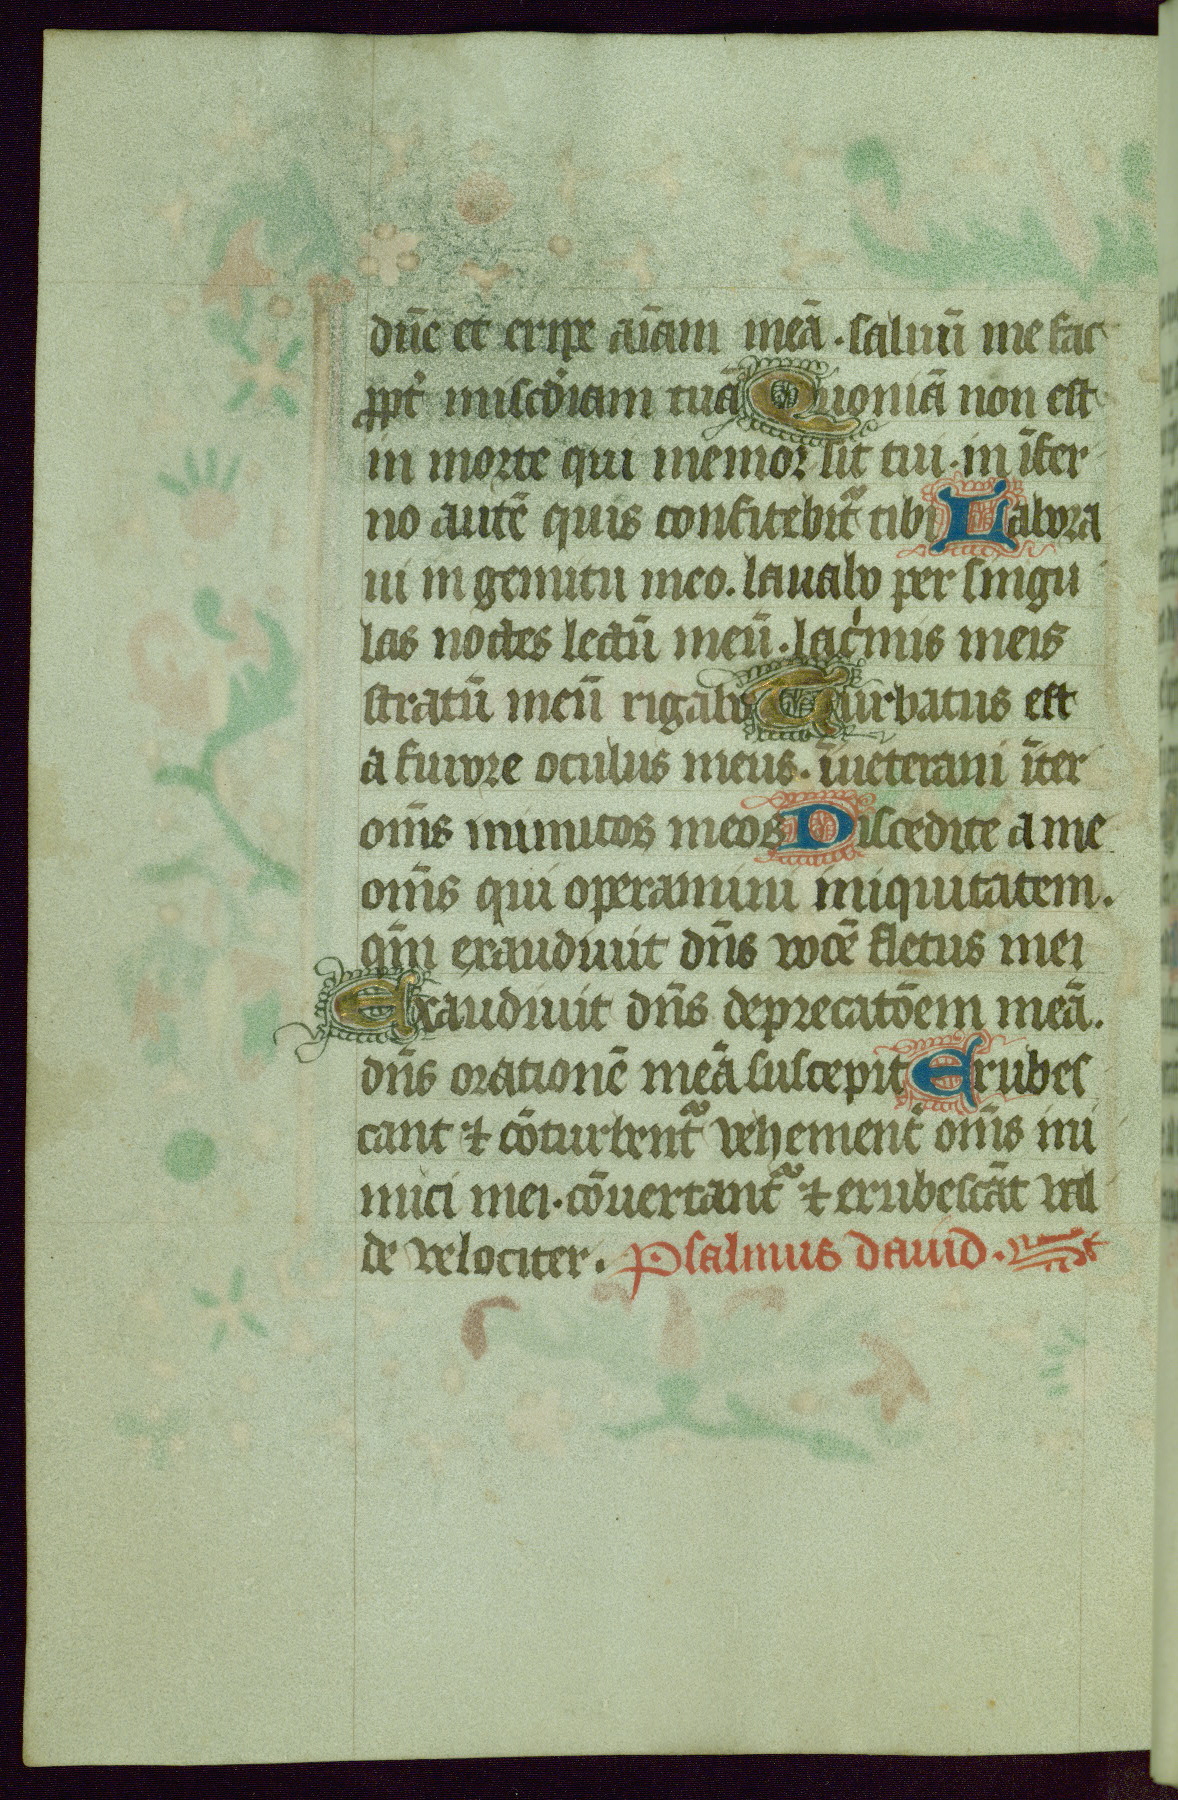 dn̄e et eripe aīam meā. saluū me fac
ꝓpt̉ misc̄diam tuā Quoniā non est
in morte qui memor sit tui. in īfer
no autē quis confitebit᷑ tibi Labora
ui in gemitu meo. lauabo per singu
las noctes lectū meū. lac̍mis meis
stratū meū rigabo Turbatus est
a furore oculus meus. īueteraui īter
om̄s inimicos meos Discedite a me
om̄s qui operamini iniquitatem.
qm̄ exaudiuit dn̄s vocē fletus mei
Exaudiuit dn̄s deprecatōem meā.
dn̄s orationē meā suscepit Erubes
cant ⁊ cōturbent᷑ vehement̄ om̄s ini
mici mei. cōuertant᷑ ⁊ erubescāt val
de velociter. Psalmus dauid.